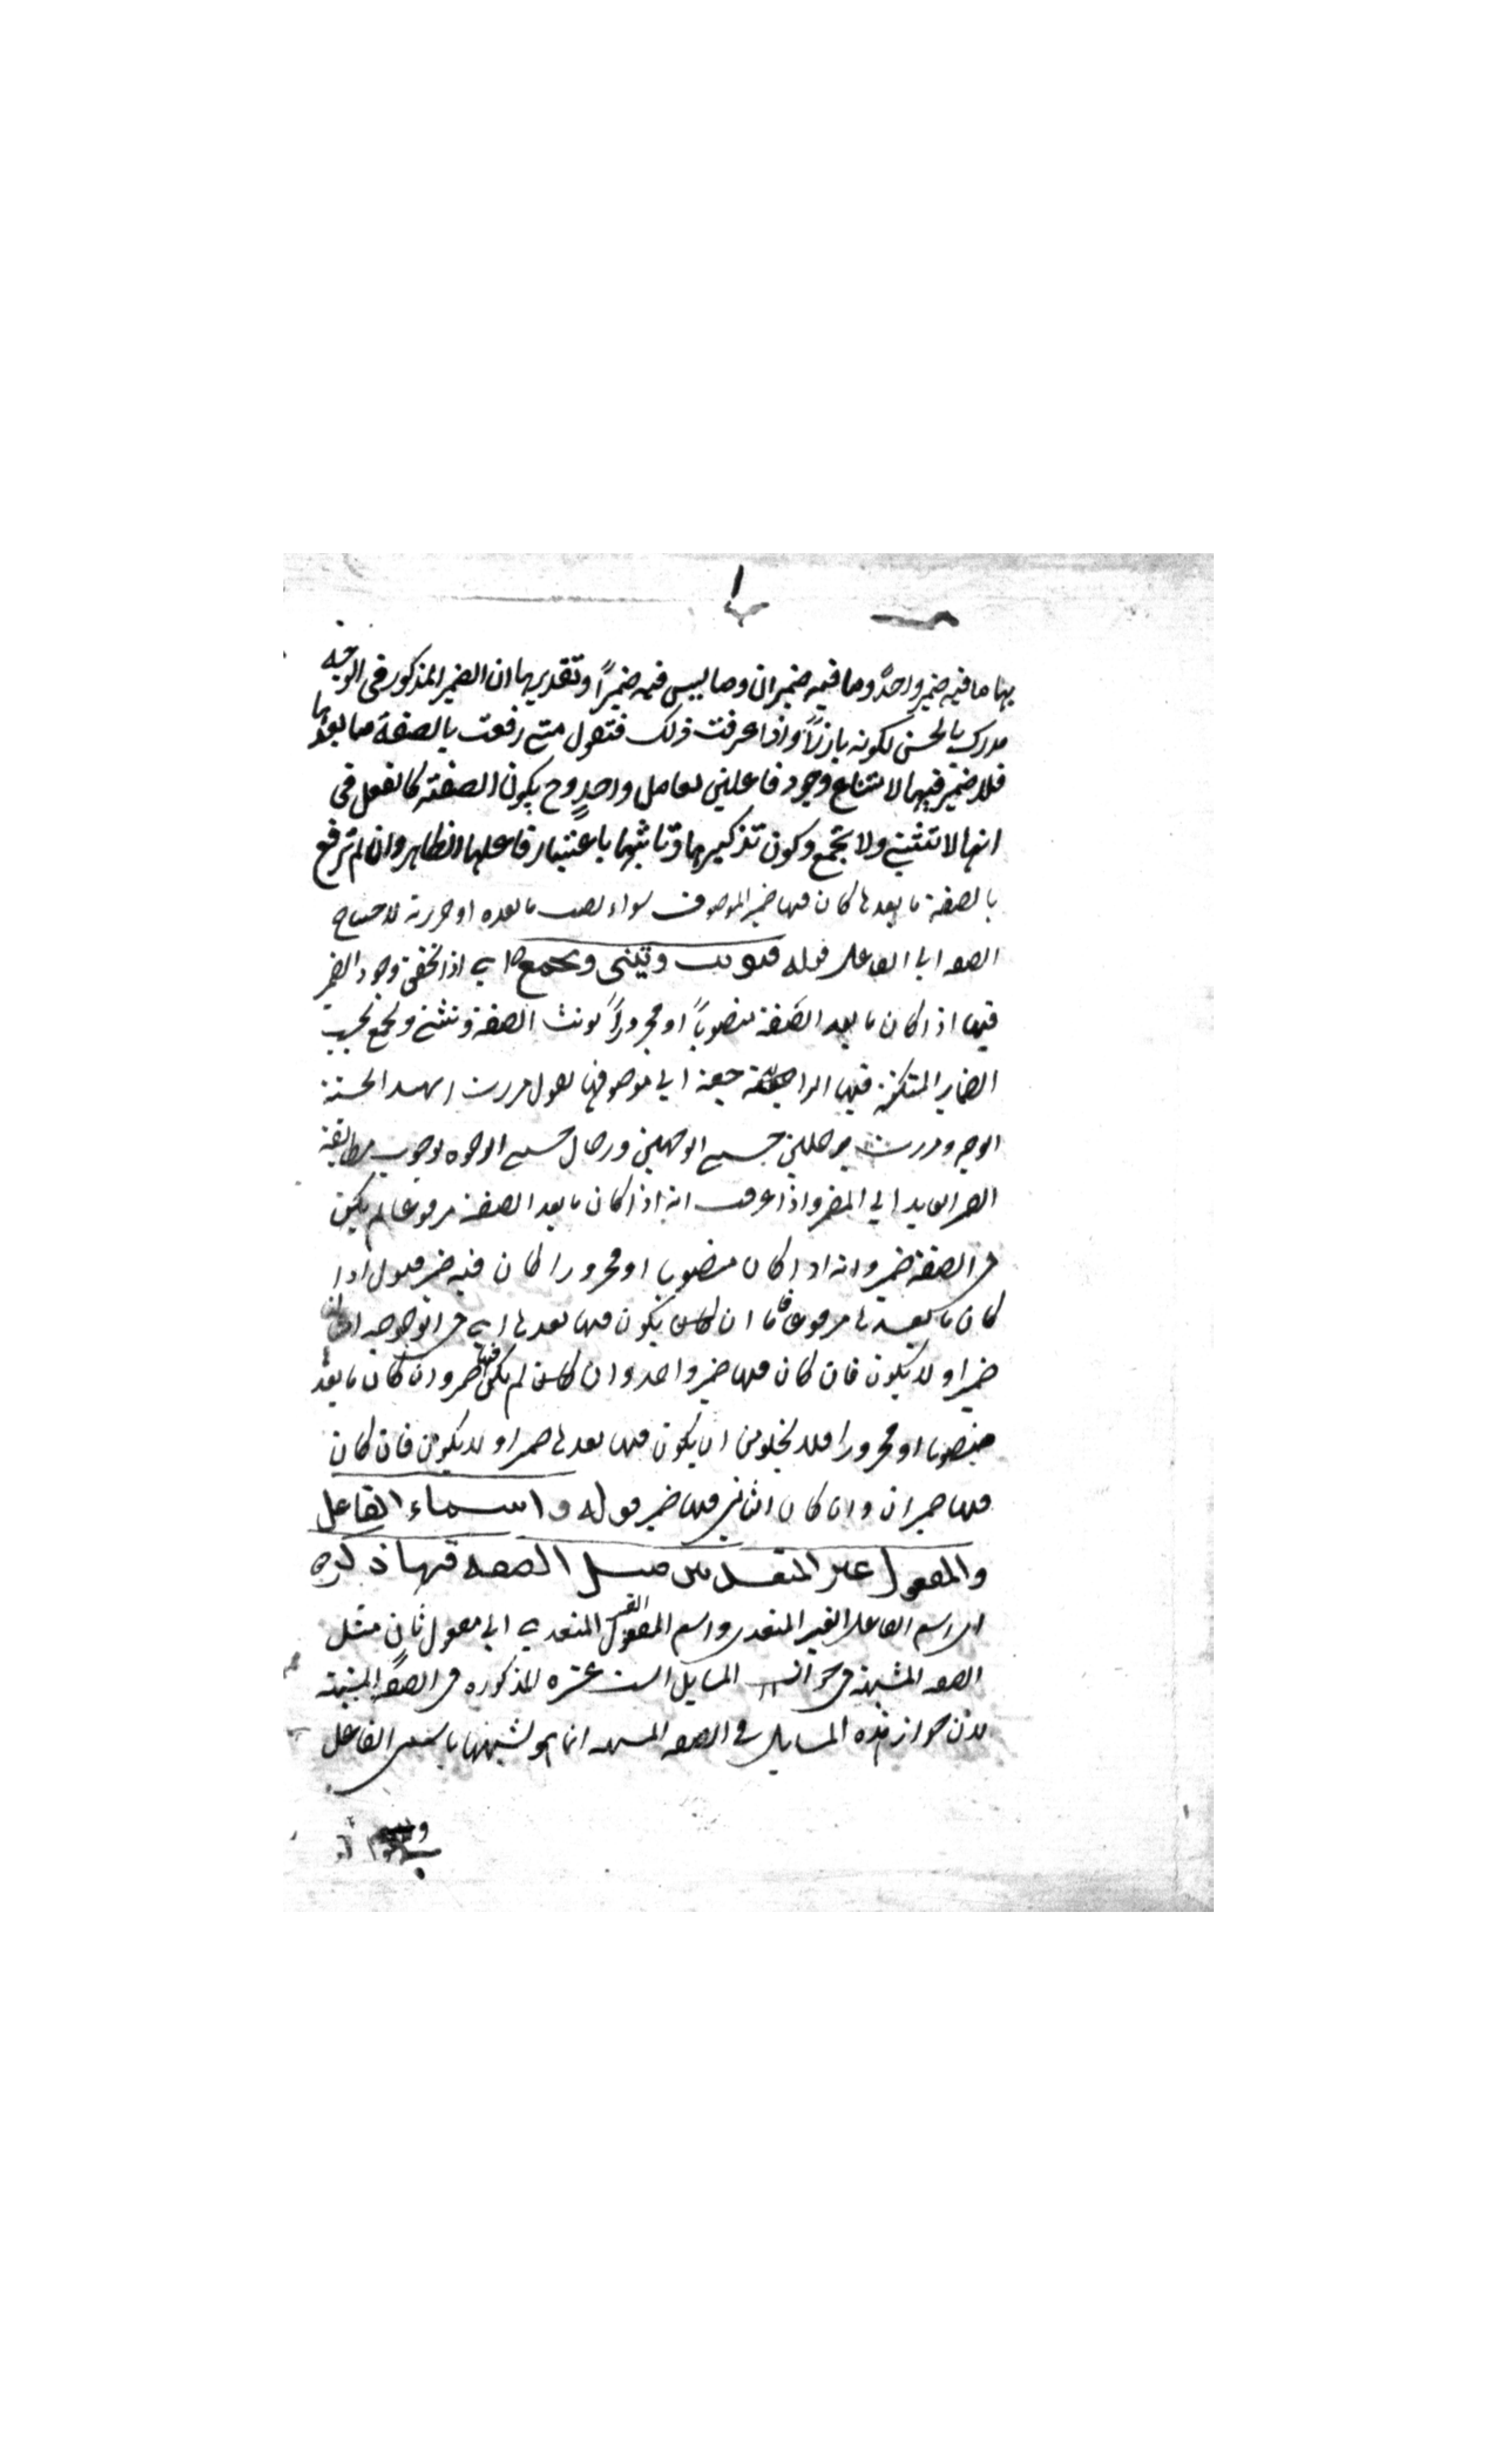 بها ما فيه ضمير واحدٌ وما فيه ضميران وما ليس فيه ضميراً وتقديرها ان الضمير المذكور في الوجه
مدرك بالحسن لكونه بارزاً واذا عرفت ذلك فتقول متى رفعت بالصفة ما بعدها
فلا ضمير فيها لامتناع وجود فاعلين لعامل واحدٍ وح يكون الصفة كالفعل في
انها لا تثنى ولا تجمع وكون تذكيرها وتانيثها باعتبار فاعلها الظاهر وان لم ترفع
بالصفة ما بعدها كان فيها ضمير الموصوف سواء نصب ما بعده او جررته لاحتياج
الصفة الى الفاعل قوله فيونث ويثنى ويجمع اي اذا تحقق وجود الضمير
فيها اذا كان ما بعد الصفة منصوباً او مجروراً يونث الصفة وتثنى وتجمع بحسب
الضماير المستكنة فيها الراجعة الى موصوفها تقول مررت بهند الحسنة
الوجه ومررت برجلين حسنى الوجهين ورجال حسنى الوجوه لوجوب مطابقة
الضمير العايد الى المضمر واذا عرفت انه اذا كان ما بعد الصفة مرفوعا لم يكن
في الصفة ضمير وانه اذا كان منصوبا او مجرورا كان فيه ضمير فنقول اذا
كان ما بعدها مرفوعا فاما ان يكون فيما بعدها اي في الوجه
ضمير او لا يكون فان كان فيها ضمير واحد وان كان لم يكن فيها ضمير وان كان ما بعدها
منصوبا او مجرورا فلا يخلو من ان يكون فيما بعدها ضمير او لا يكون فان كان
فيها ضميران وان كان الثاني فيها ضمير قوله و اسماء الفاعل
والمفعول غير المتعديين مثل الصفة فيما ذكر
اي اسم الفاعل الغير المتعدي واسم المفعول الغير المتعدي الى مفعول ثانٍ مثل
الصفة المشبهة في جواز المسايل الست عشره المذكوره في الصفة المشبهة
لان جواز هذه المسايل في الصفة المشبهه انما هو لشبهها باسمى الفاعل